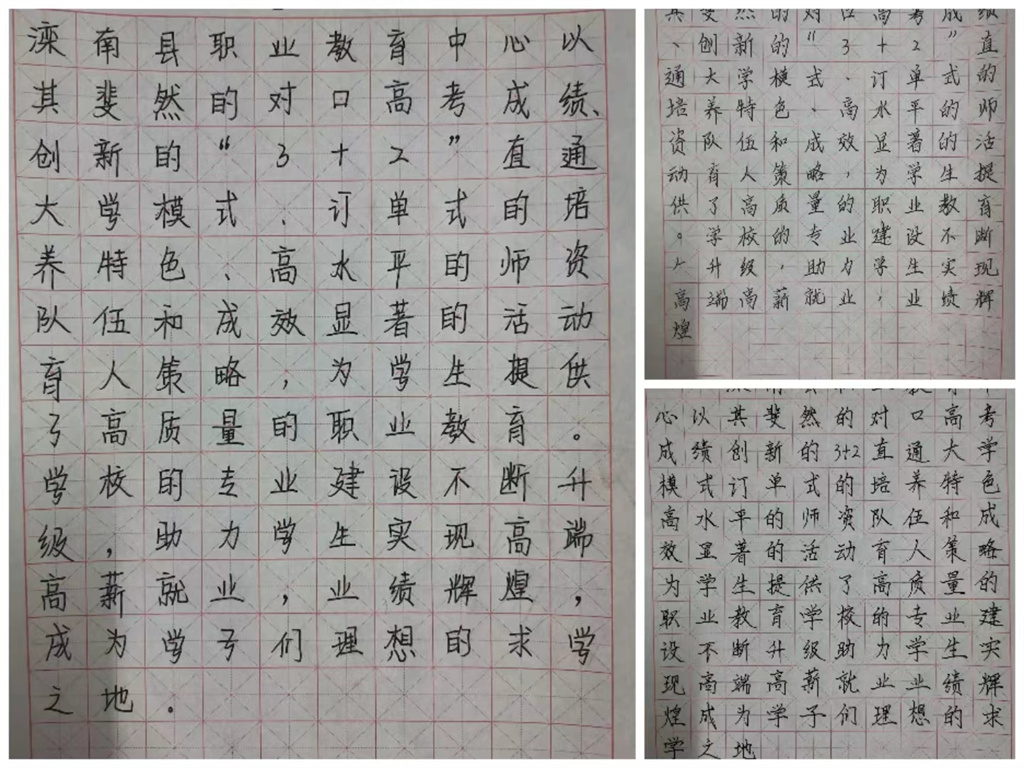 滦南县职业教育中心以
其斐然的对口高考成绩、
创新的“3+2”直通
大学模式、订单式的培
养特色、高水平的师资
队伍和成效显著的活动
育人策略，为学生提供
了高质量的职业教育。
学校的专业建设不断升
级，助力学生实现高端
高薪就业，业绩辉煌，
成为学子们理想的求学
之地.
其斐然的对口高考成绩
、创新的“3+2”直
通大学模式、订单式的
培养特色、高水平的师
资队伍和成效显著的活
动育人策略，为学生提
供了高质量的职业教育
。学校的专业建设不断
升级，助力学生实现
高端高薪就业，业绩辉
煌
心以其斐然的对口高考
成绩创新的3+2直通大学
模式订单式的培养特色
高水平的师资队伍和成
效显著的活动育人策略
为学生提供了高质量的
职业教育学校的专业建
设不断升级助力学生实
现高端高薪就业业绩辉
煌成为学子们理想的求
学之地